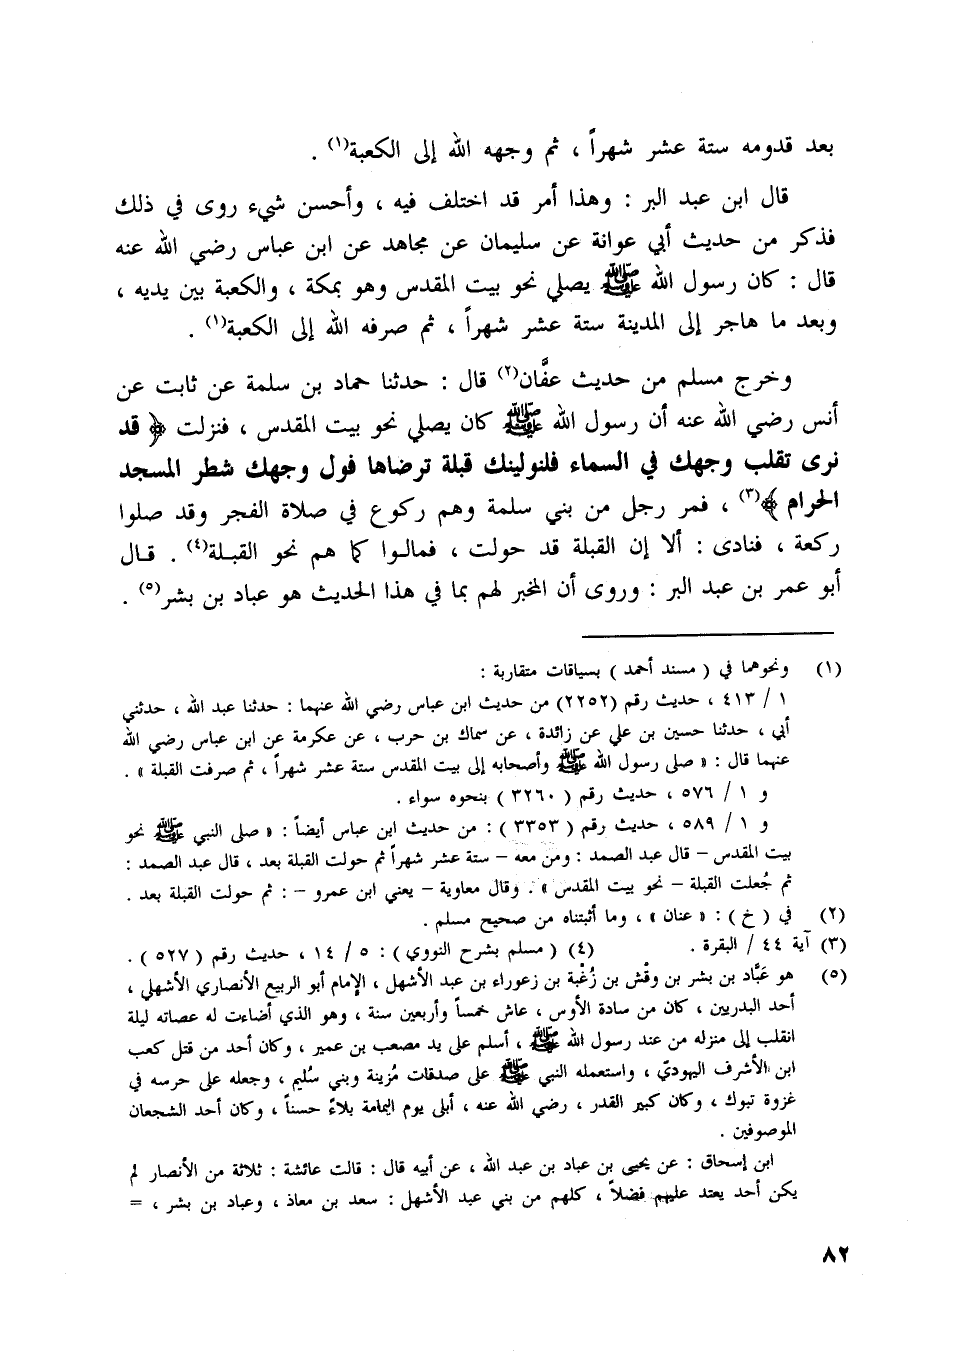 بعد قدومه ستة عشر شهراً ، ثم وجهه الله إلى الكعبة(١) .
قال ابن عبد البر : وهذا أمر قد اختلف فيه ، وأحسن شيء روى في ذلك
فذكر من حديث أبي عوانة عن سليمان عن مجاهد عن ابن عباس رضي الله عنه
قال : كان رسول الله ﷺ يصلي نحو بيت المقدس وهو بمكة ، والكعبة بين يديه ،
وبعد ما هاجر إلى المدينة ستة عشر شهراً ، ثم صرفه الله إلى الكعبة(١) .
وخرج مسلم من حديث عفَّان(٢) قال : حدثنا حماد بن سلمة عن ثابت عن
أنس رضي الله عنه أن رسول الله ﷺ كان يصلي نحو بيت المقدس ، فنزلت ﴿ قد
نرى تقلب وجهك في السماء فلنولينك قبلة ترضاها فول وجهك شطر المسجد
الحرام ﴾(٣) ، فمر رجل من بني سلمة وهم ركوع في صلاة الفجر وقد صلوا
ركعة ، فنادى : ألا إن القبلة قد حولت ، فمالوا كما هم نحو القبلة(٤) . قال
أبو عمر بن عبد البر : وروى أن المخبر لهم بما في هذا الحديث هو عباد بن بشر(٥) .
(١) ونحوهما في ( مسند أحمد ) بسياقات متقاربة :
١ / ٤١٣ ، حديث رقم (٢٢٥٢) من حديث ابن عباس رضي الله عنهما : حدثنا عبد الله ، حدثني
أبي ، حدثنا حسين بن علي عن زائدة ، عن سماك بن حرب ، عن عكرمة عن ابن عباس رضي الله
عنهما قال : « صلى رسول الله ﷺ وأصحابه إلى بيت المقدس ستة عشر شهراً ، ثم صرفت القبلة » .
و ١ / ٥٧٦ ، حديث رقم ( ٣٢٦٠ ) بنحوه سواء .
و ١ / ٥٨٩ ، حديث رقم ( ٣٣٥٣ ) : من حديث ابن عباس أيضاً : « صلى النبي ﷺ نحو
بيت المقدس – قال عبد الصمد : ومن معه – ستة عشر شهراً ثم حولت القبلة بعد ، قال عبد الصمد :
ثم جُعلت القبلة – نحو بيت المقدس » . وقال معاوية – يعني ابن عمرو – : ثم حولت القبلة بعد .
(٢) في ( خ ) : « عنان » ، وما أثبتناه من صحيح مسلم .
(٣) آية ٤٤ / البقرة . (٤) ( مسلم بشرح النووي ) : ٥ / ١٤ ، حديث رقم ( ٥٢٧ ) .
(٥) هو عَبَّاد بن بشر بن وقْش بن زُغْبة بن زعوراء بن عبد الأشهل ، الإمام أبو الربيع الأنصاري الأشهلي ،
أحد البدريين ، كان من سادة الأوس ، عاش خمساً وأربعين سنة ، وهو الذي أضاءت له عصاته ليلة
انقلب إلى منزله من عند رسول الله ﷺ ، أسلم على يد مصعب بن عمير ، وكان أحد من قتل كعب
ابن الأشرف اليهوديّ ، واستعمله النبي ﷺ على صدقات مُزينة وبني سُليم ، وجعله على حرسه في
غزوة تبوك ، وكان كبير القدر ، رضي الله عنه ، أبلى يوم اليمامة بلاءً حسناً ، وكان أحد الشجعان
الموصوفين .
ابن إسحاق : عن يحيى بن عباد بن عبد الله ، عن أبيه قال : قالت عائشة : ثلاثة من الأنصار لم
يكن أحد يعتد عليهم فضلاً ، كلهم من بني عبد الأشهل : سعد بن معاذ ، وعباد بن بشر ، =
٨٢